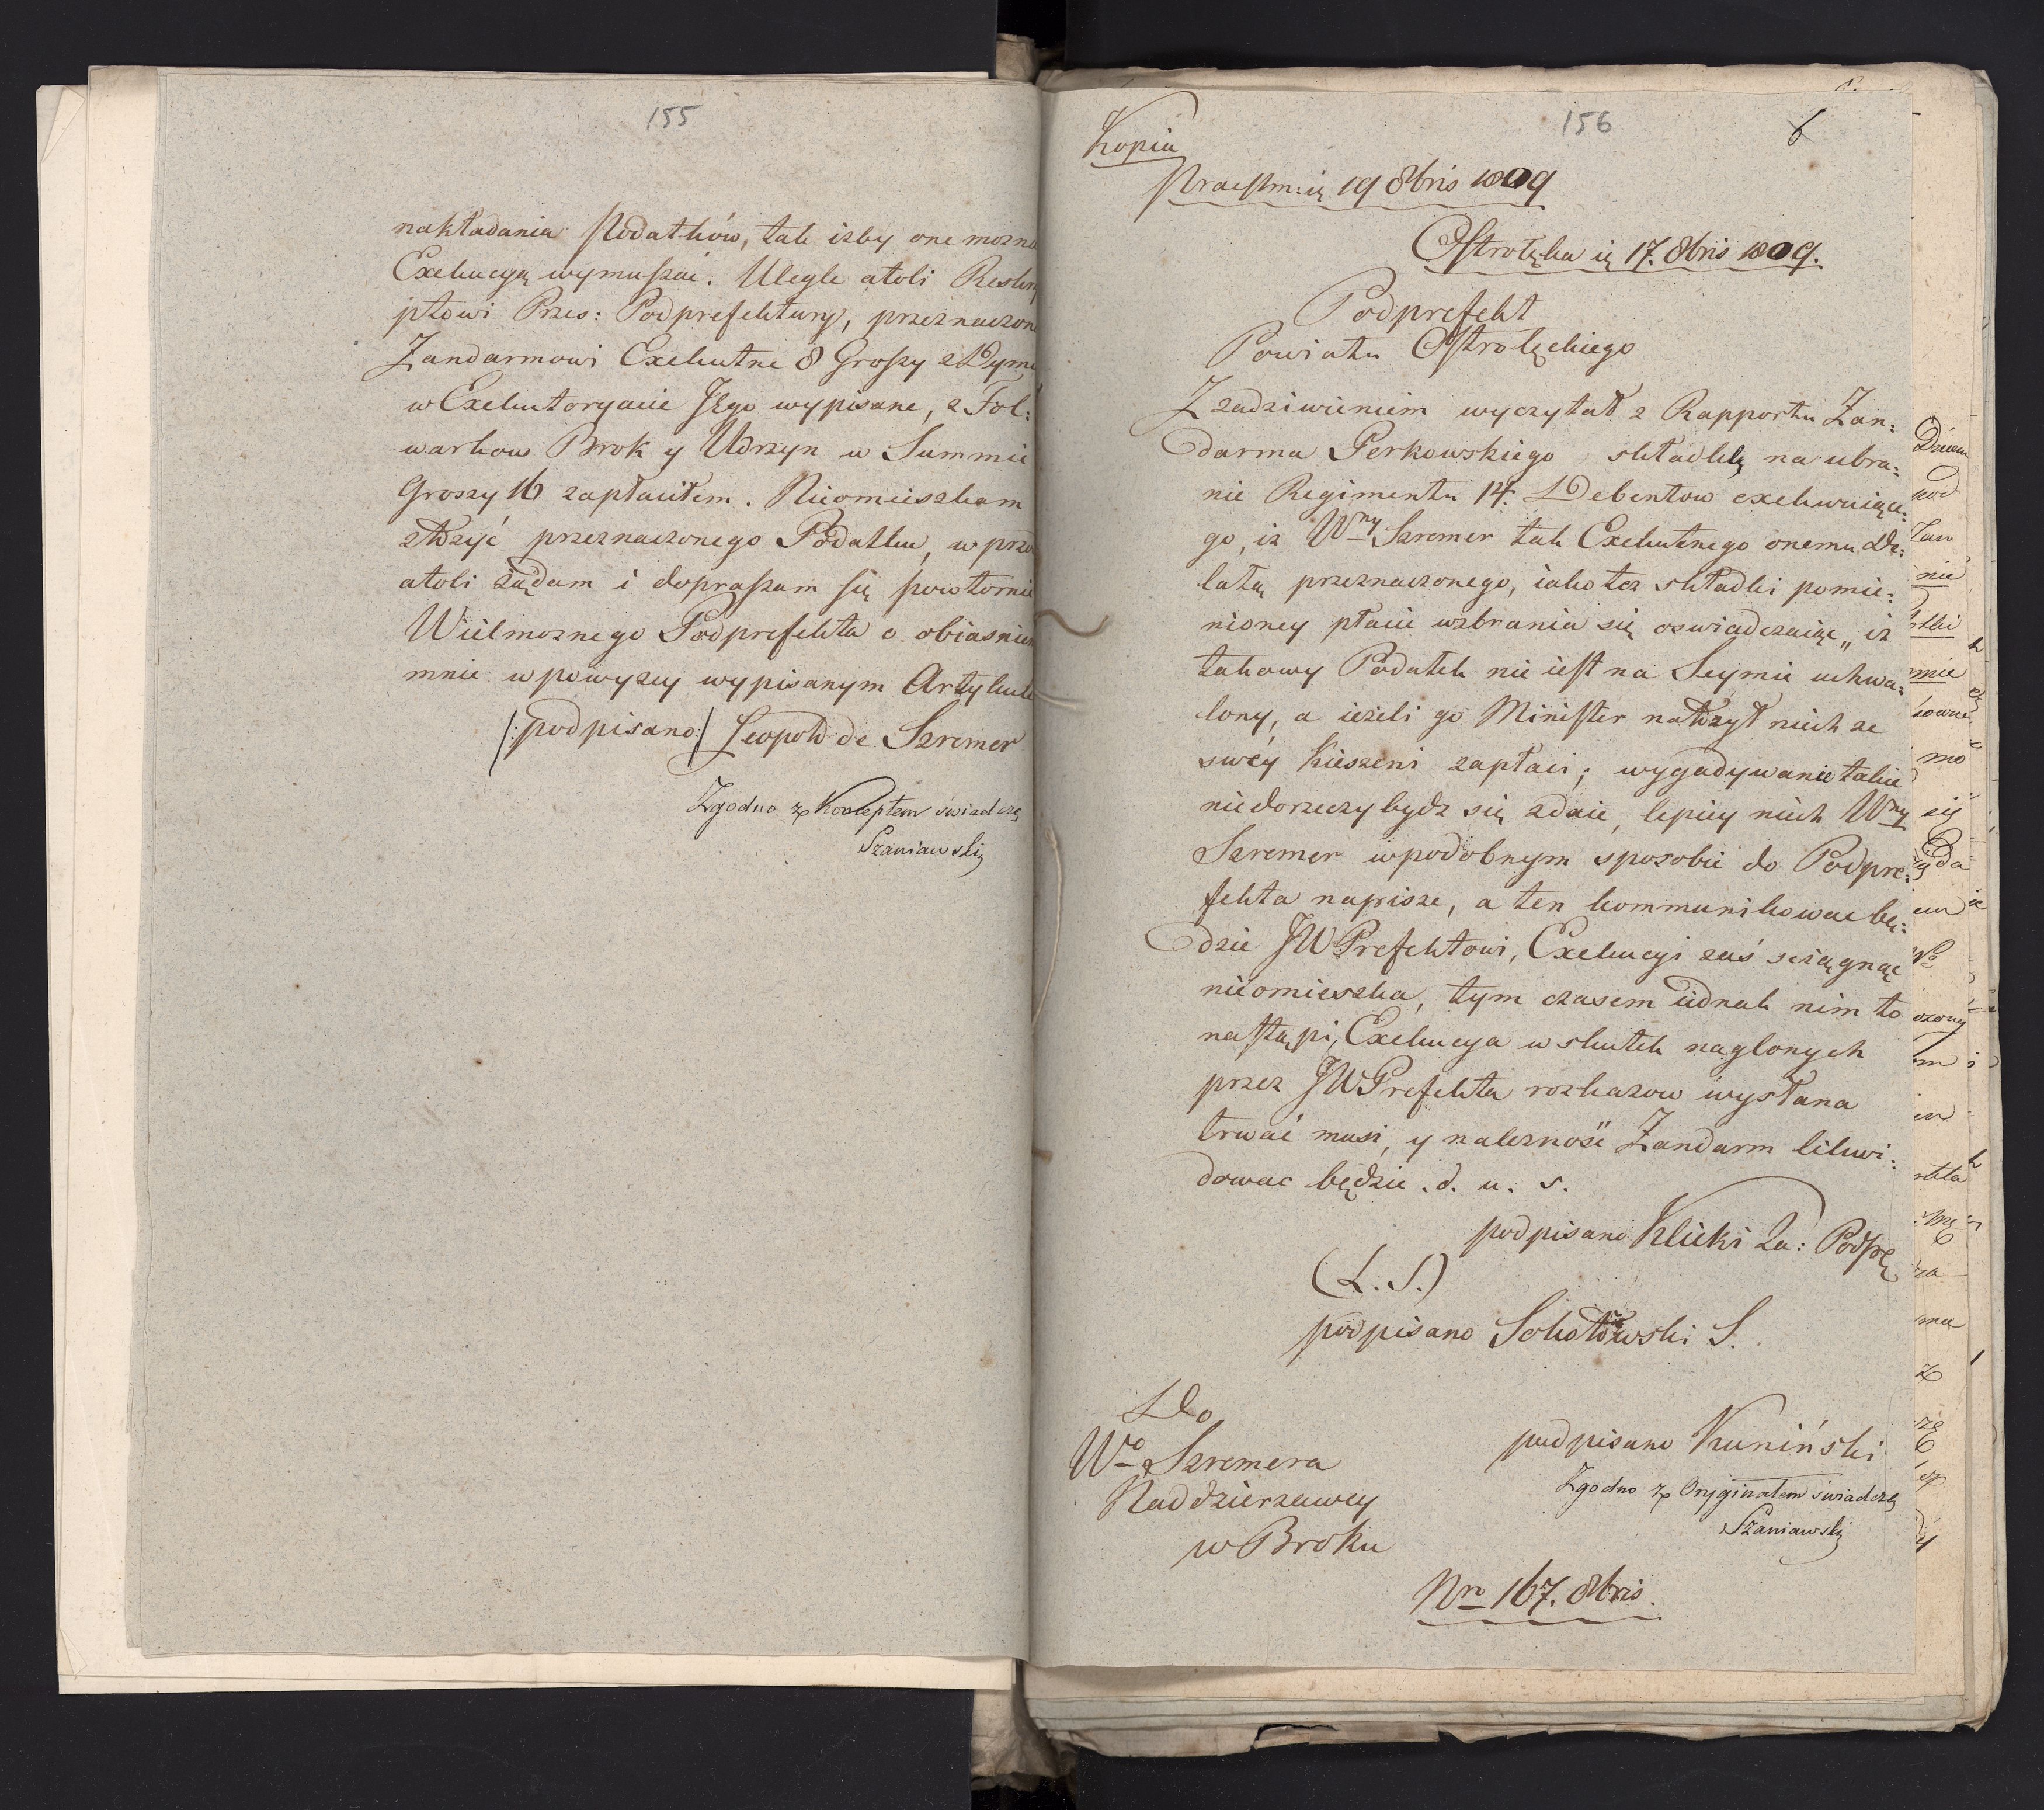 155
nakładania Podatków, tak izby one mozna
Exekucyą wymuszać. Ulegle atoli Reskry
ptowi Przes: Podprefektury, przeznaczone
Zandarmowi Exekutne 8 Groszy z Dymu
w Exekutoryacie JEgo wypisane, z Fol:
warkow Brok y Udrzyn w Summie
Groszy 16 zapłaciłem. Nieomieszkam
złożyć przeznaczonego Podatku, w przo
atoli żądam i dopraszam się powtornie
Wielmoznego Podprefekta o obiasnien
mnie w powyzey wypisanym Artykule
/: podpisano :/ Leopold de Szremer
Zgodno z Konceptem świadczę
Szaniawski
156
6
Kopia
Praestm: ię 19 8bris 1809
Ostrołęka ię 17. 8bris 1809.
Podprefekt
Powiatu Ostrołęckiego
Z zadziwieniem wyczytał z Rapportu Zan:
darma Perkowskiego składkę na ubra:
nie Regimentu 14. Debentow exekwuiące:
go, iz Wny Szremer tak Exekutnego onemu De:
latą przeznaczonego, iako tez składki pomie:
nioney płacić wzbrania się oswiadczaiąc „ iz
takowy Podatek nie iest na Seymie uchwa:
lony, a iezeli go Minister nałożył niech ze
swéy Kieszeni zapłaci; wygadywanie takie
niedorzeczy bydz się zdaie, lepiey niech Wny
Szremer w podobnym sposobie do Podpre:
fekta napisze, a ten kommunikowac bę:
dzie JW Prefektowi, Exekucyi zaś sciągnąc
nieomieszka, tym czasem iednak nim to
nastąpi, Exekucya w skutek naglonych
przez JW Prefekta rozkazow wysłana
trwać musi, y nalezność Zandarm likwi:
dowac będzie. d. u. s.
podpisano Klicki Za: Podpr
(L. S.)
podpisano Sokołowski S.
Do
Wo Szremera
Naddzierzawcy
w Broku
podpisano Kuniński
Zgodno z Oryginałem świadczę
Szaniawski
Nro 167. 8bris.